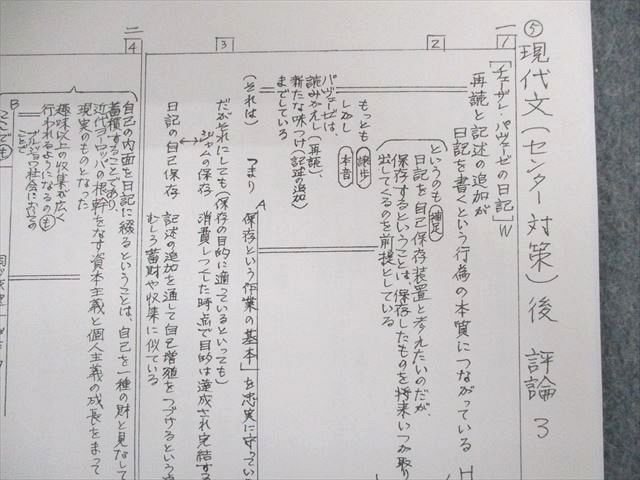 ⑤ 現代文(センター対策)後 評論 3
一
1
「チェーザレ・パヴェーゼの日記」W
再読と記述の追加が
日記を書くという行為の本質につながっている
H
2
というのも 補足
日記を自己保存装置と考えたいのだが、
保存するということは、保存したものを将来いつか取り
出してくるのを前提としている
もっとも 譲歩
しかし 本音
パヴェーゼは、
読みかえし(再読)、
新たな味つけ(記述の追加)
までしている
3
(それは) つまり
A
保存という作業の基本」を忠実に守ってい
だがそれにしても(保存の目的に適っているといっても)
ジャムの保存 消費しつくした時点で目的は達成され完結する
↕
日記の自己保存 記述の追加を通して自己増殖をつづけるという
むしろ蓄財や収集に似ている
二
4
自己の内面を日記に綴るということは、自己を一種の財と見なして
蓄積することであり
近代ヨーロッパの根幹をなす資本主義と個人主義の成長をまって
現実のものとなった
B
趣味以上の収集が広く
行われるようになるのも
ブルジョワ社会における
ことで
ここでも